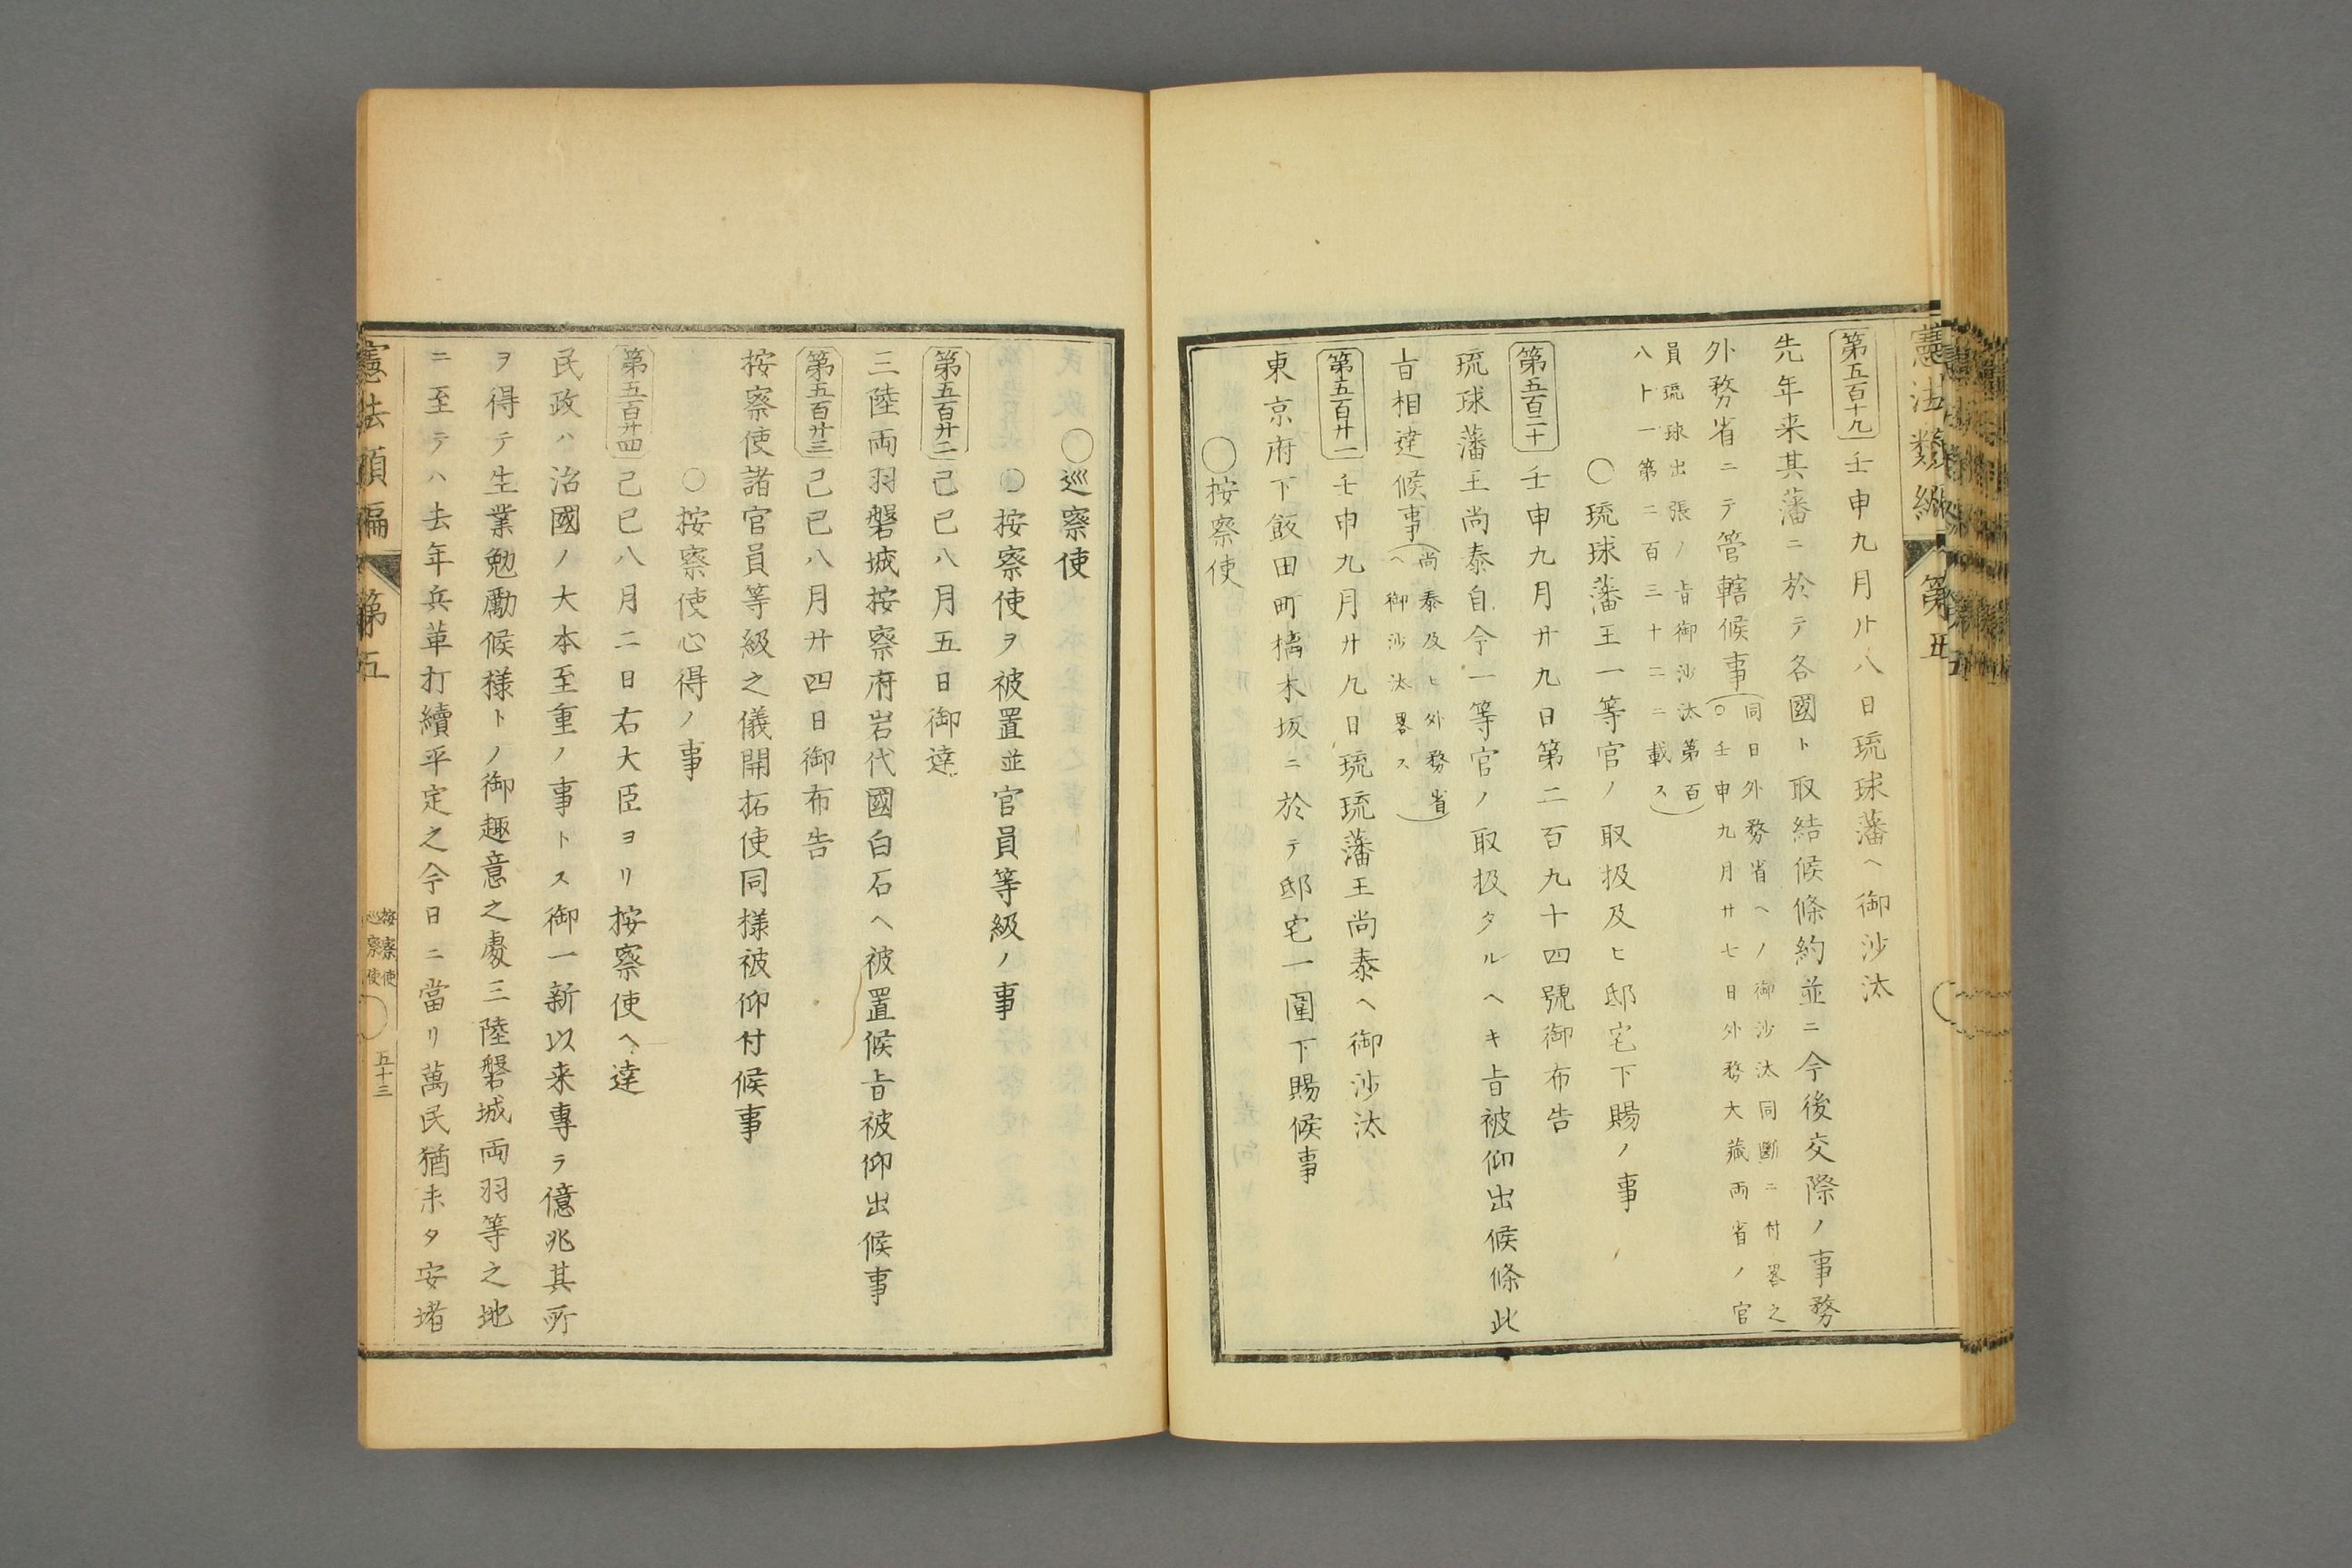 憲法類編 第五
第五百十九 壬申九月廿八日琉球藩ヘ御沙汰
先年来其藩ニ於テ各國ト取結候條約並ニ今後交際ノ事務
外務省ニテ管轄候事(同日外務省ヘノ御沙汰同斷ニ付畧之
○壬申九月廿七日外務大藏両省ノ官
員琉球出張ノ旨御沙汰第百
八ト一第二百三十二ニ載ス)
○琉球藩王一等官ノ取扱及ヒ邸宅下賜ノ事
第五百二十 壬申九月廿九日第二百九十四號御布告
琉球藩王尚泰自今一等官ノ取扱タルヘキ旨被仰出候條此
旨相達候事(尚泰及ヒ外務省
ヘ御沙汰畧ス)
第五百廿一 壬申九月廿九日琉琉藩王尚泰ヘ御沙汰
東京府下飯田町橋木坂ニ於テ邸宅一圍下賜候事
○按察使
○巡察使
○按察使ヲ被置並官員等級ノ事
第五百廿二 己巳八月五日御達
三陸両羽磐城按察府岩代國白石ヘ被置候旨被仰出候事
第五百廿三 己巳八月廿四日御布告
按察使諸官員等級之儀開拓使同様被仰付候事
○按察使心得ノ事
第五百廿四 己巳八月二日右大臣ヨリ按察使ヘ達
民政ハ治國ノ大本至重ノ事トス御一新以来專ラ億兆其所
ヲ得テ生業勉勵候様トノ御趣意之處三陸磐城両羽等之地
ニ至テハ去年兵革打續平定之今日ニ當リ萬民猶未タ安堵
憲法類編 第五
按察使
巡察使
五十三